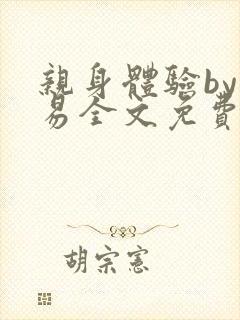 親身體驗by
易全文免費
胡宗憲